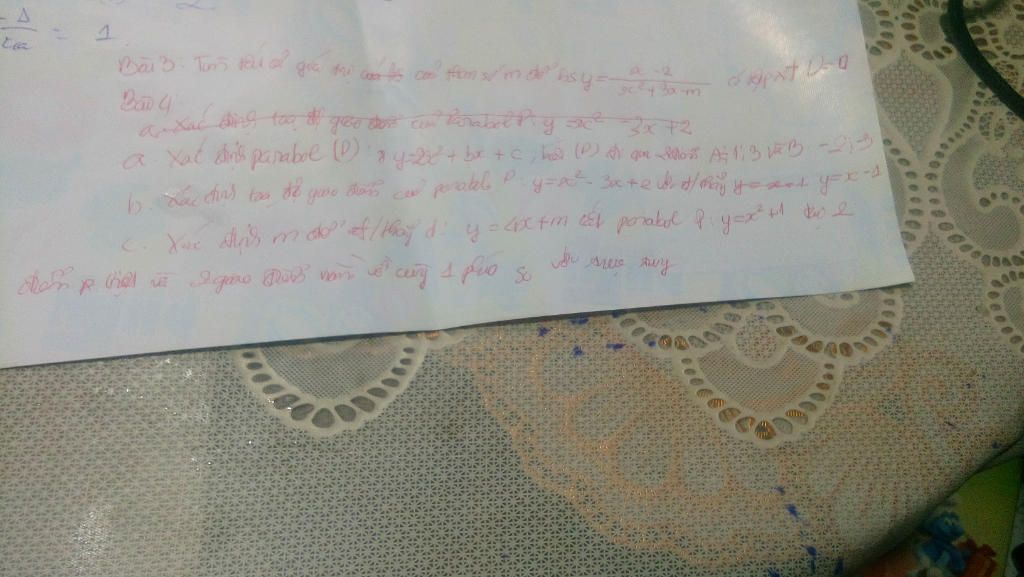 -Δ = 1
Bài 3: Tìm tất cả giá trị của tham số m để hs y = x-2/x²+3x-m có tập xđ D=R
Bài 4
a. Xác định toạ độ giao điểm của Parabol P: y = x² - 3x + 2
a. Xác định parabol (P): y = 2x² + bx + c, biết (P) đi qua điểm A 1;3 và B -2;3
b. Xác định toạ độ giao điểm của parabol P: y = x² - 3x + 2 với đ/thẳng y = x - 1
c. Xác định m để đ/thẳng d: y = 4x + m cắt parabol P: y = x² + 1 tại 2
điểm p biệt và 2 giao điểm nằm về cùng 1 phía so với trục